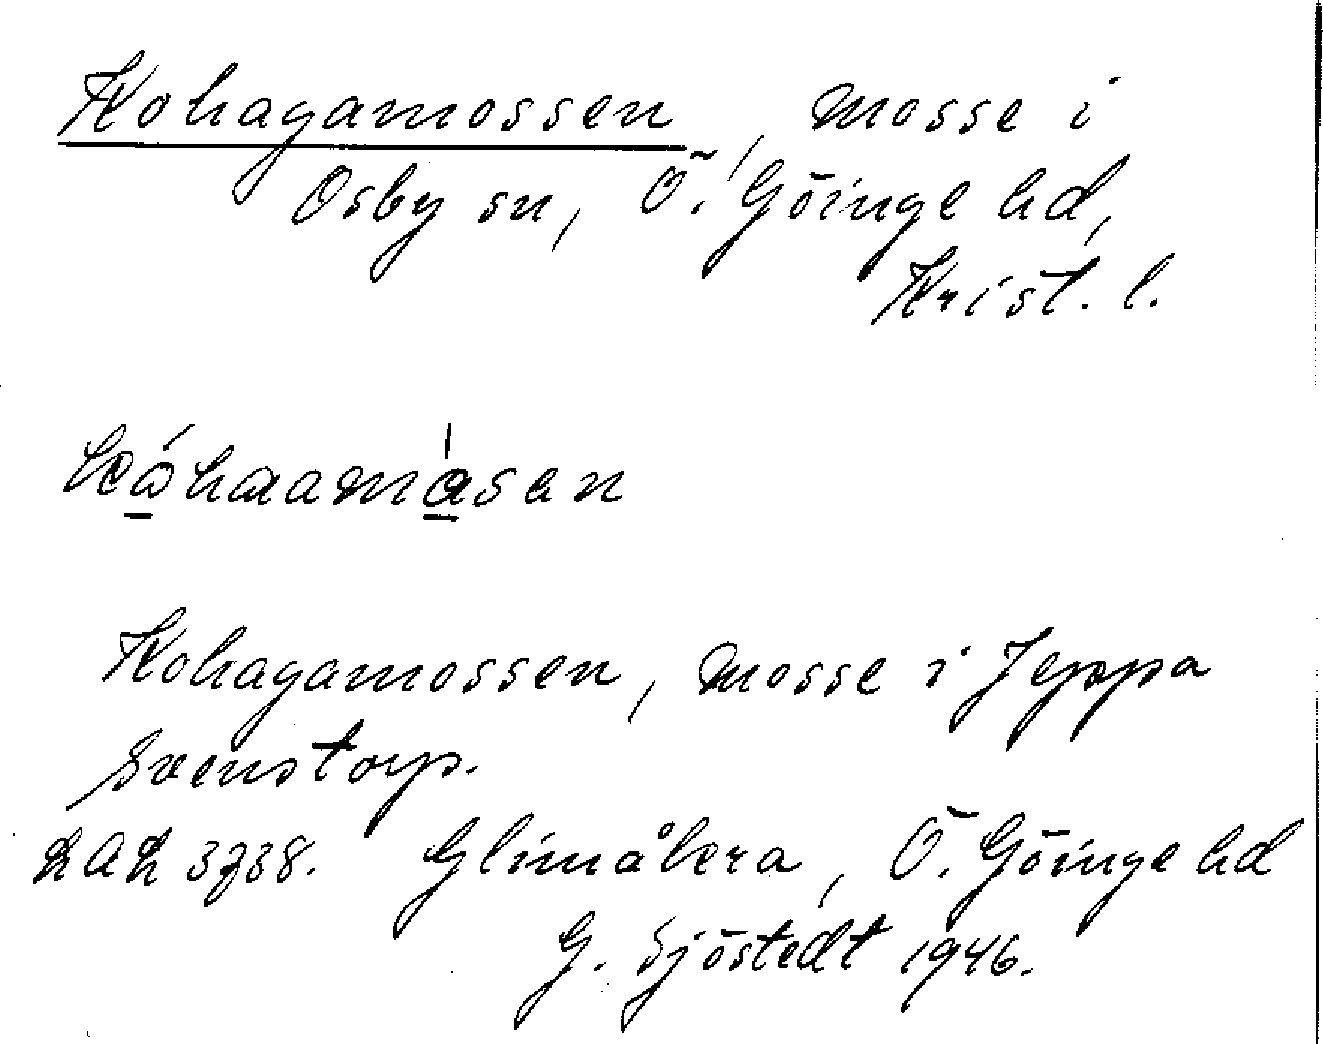 Kohagamossen, mosse i
Osby sn, Ö. Göinge hd,
Krist. l.
Kohagamossen, mosse i Jeppa
Svenstorp.
LAL 3738. Glimåkra, Ö. Göinge hd
G. Sjöstedt 1946.